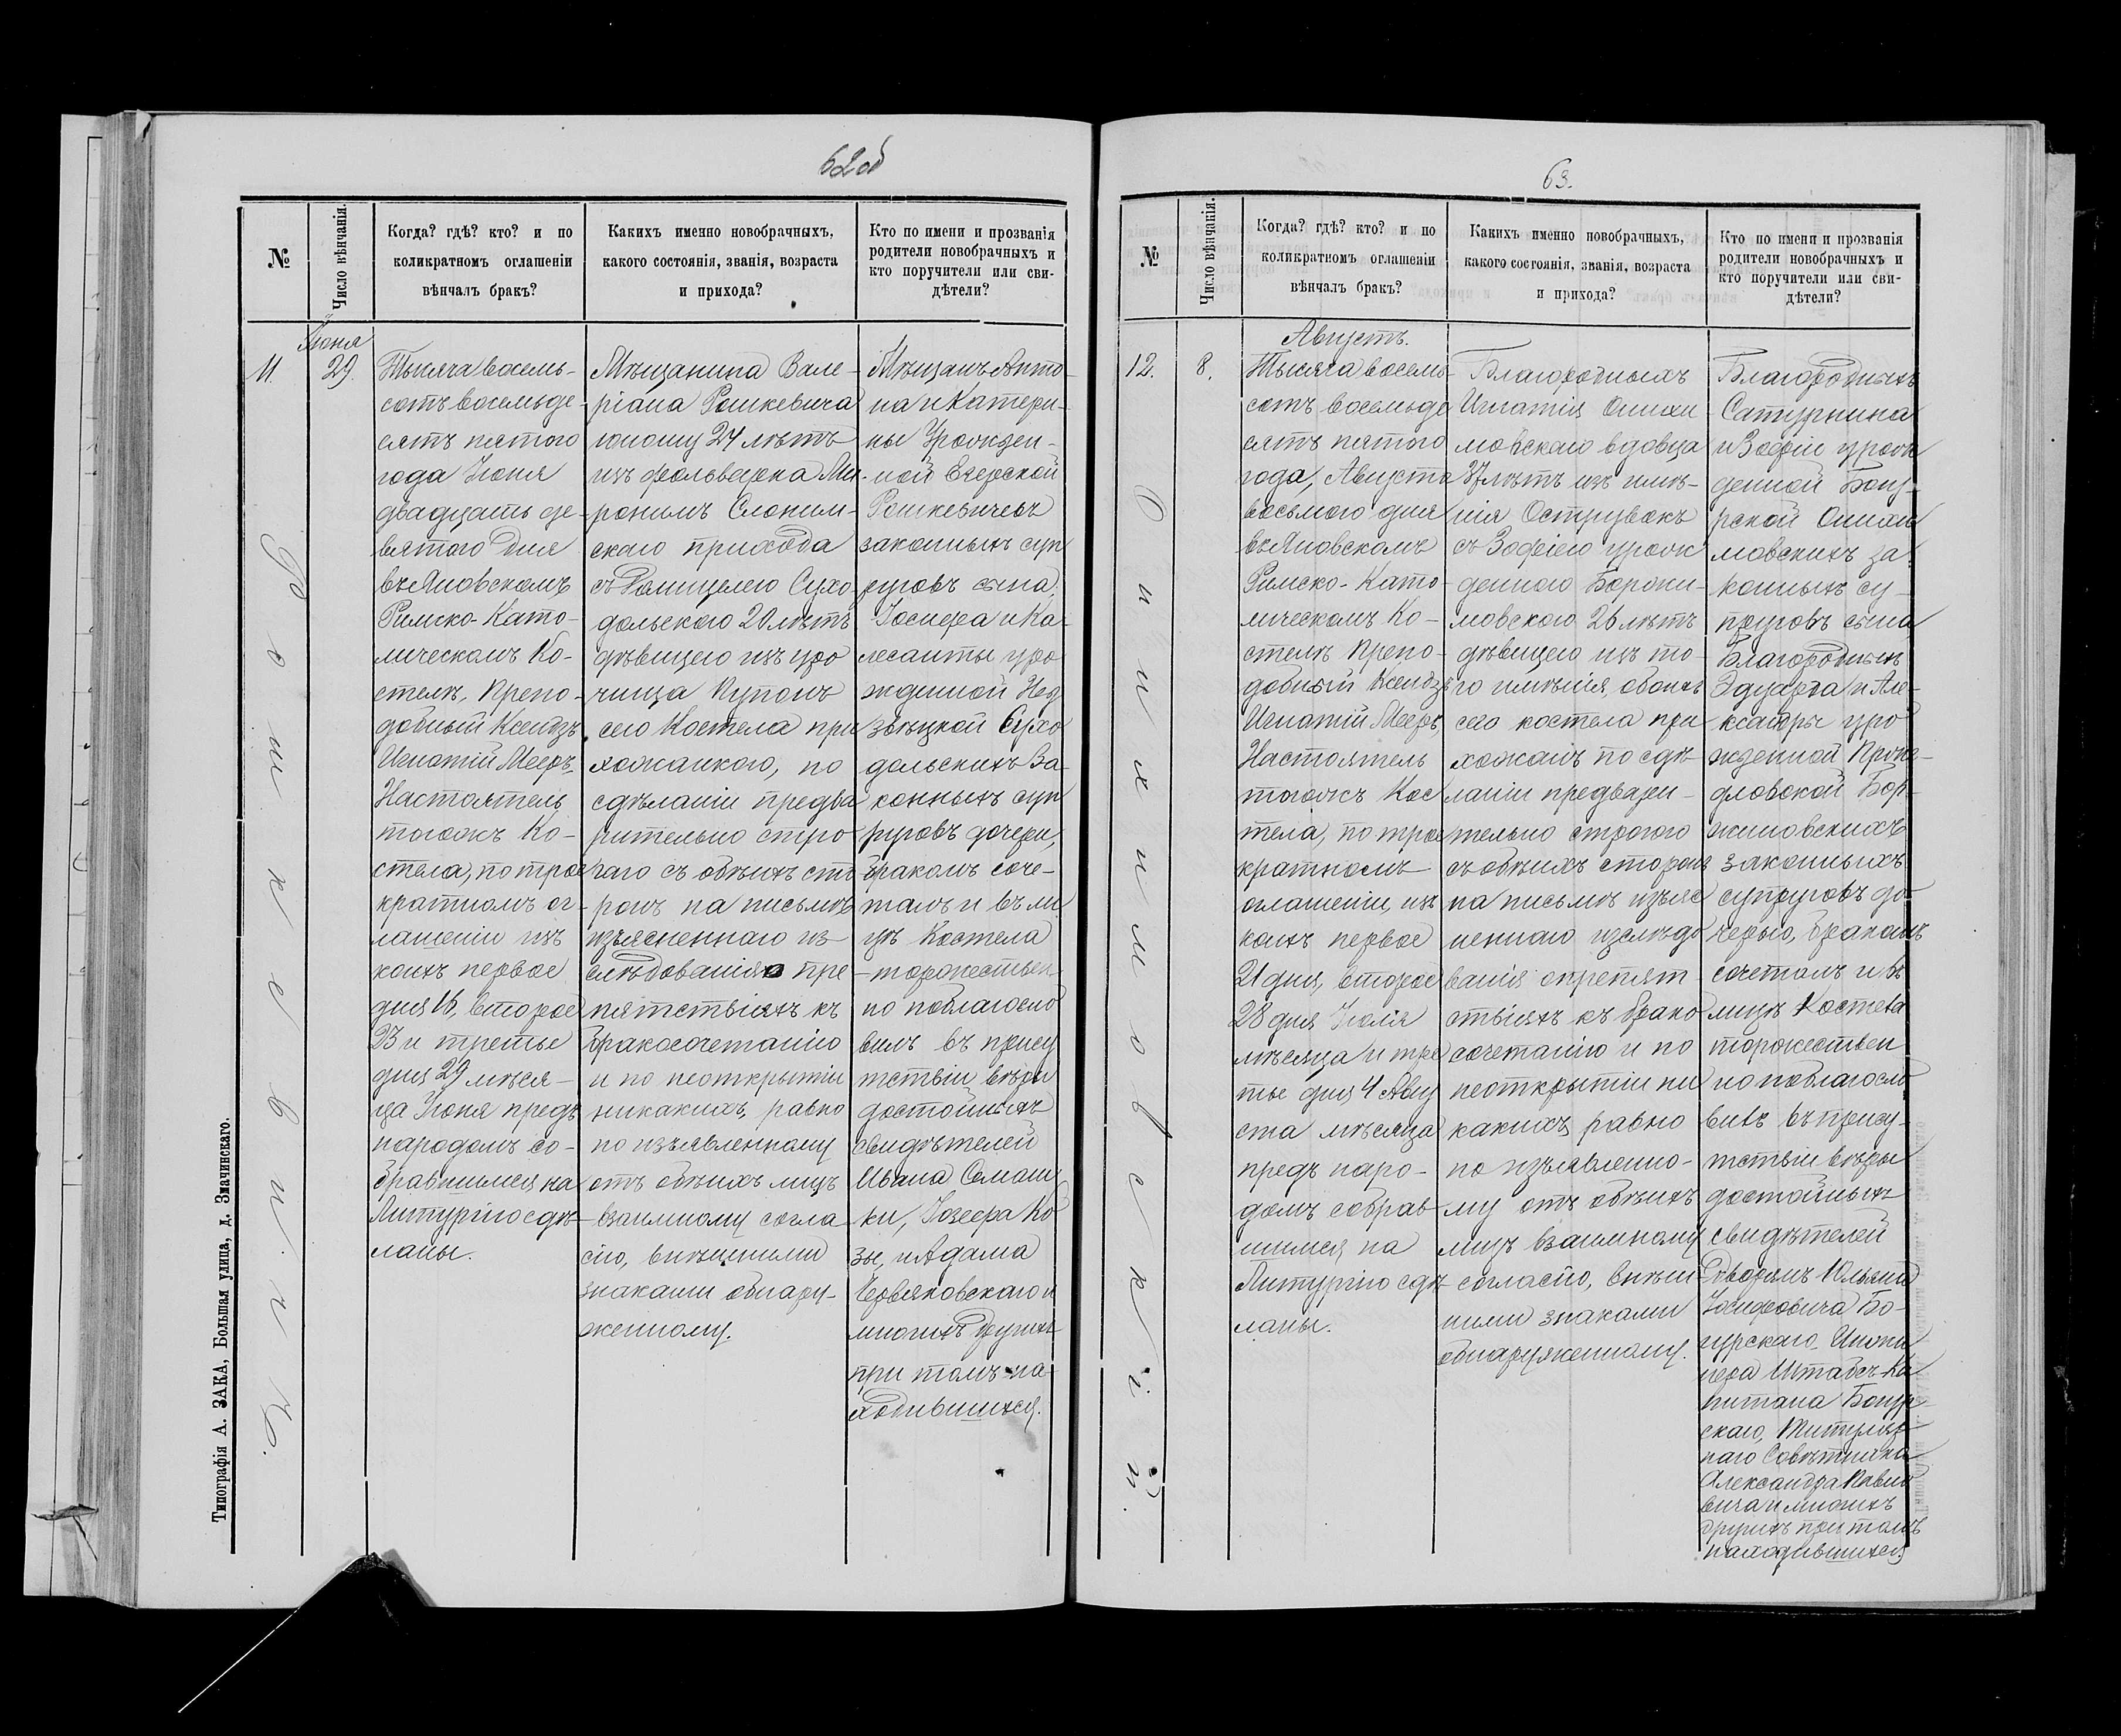 62об
№
Число вѣнчанія.
Когда? гдѣ? кто? и по
коликратномъ оглашеніи
вѣнчалъ бракъ?
Какихъ именно новобрачныхъ,
какого состоянія, званія, возраста
и прихода?
Кто по имени и прозванія
родители новобрачныхъ и
кто поручители или сви-
дѣтели?
Іюня
11.
29.
Тысяча восемь-
сотъ восемьде-
сятъ пятого
года Іюня
двадцать де-
вятого дня
въ Яновскомъ
Римско-Като-
лическомъ Ко-
стелѣ, Препо-
добный Ксендзъ
Игнатій Мееръ
Настоятель
тогожъ Ко-
стела, по трое
кратномъ ог-
лашеніи изъ
коихъ первое
дня 16, второе
23 и третье
дня 29 мѣся-
ца Іюня предъ
народомъ со-
бравшимся на
Литургію сдѣ-
ланы.
Мѣщанина Вале-
ріана Рошкевича
юношу 24 лѣтъ
изъ фольварка Ми-
ронимъ Слоним-
скаго прихода
съ Фелицелею Сухо
дольскою 20 лѣтъ
дѣвицею изъ уро
чища
сего Костела при
хожанкою, по
сдѣланіи предва
рительно стро
гаго съ обѣихъ сто
ронъ на письмѣ
изъясненнаго из-
слѣдованія о пре-
пятствіяхъ къ
бракосочетанію
и по неоткрытіи
никакихъ, равно
по изъявленному
отъ обѣихъ лицъ
взаимному согла
сію, внѣшними
знаками обнару-
женному.
Мѣщанъ Анто-
на и Катери-
ны Урожден-
ной
Рошкевичевъ
законныхъ суп
руговъ сына,
Іосифа и Ка-
уро
жденной Нед
звѣцкой Сухо
дольскихъ За-
конныхъ суп
руговъ дочери,
бракомъ соче-
талъ и въ ли
цѣ Костела
торжествен
но поблагосло
вилъ въ прису
тствіи вѣри
достойныхъ
свидѣтелей
Ивана Семаш
ки, Іозефа Ко
зы, и Адама
Червяковскаго и
многихъ другихъ
при томъ на-
ходившихся.
Рошкевичъ.
Типографія А. ЗАКА, Большая улица, д. Значинскаго.
63.
№
Число вѣнчанія.
Когда? гдѣ? кто? и по
коликратномъ оглашеніи
вѣнчалъ бракъ?
Какихъ именно новобрачныхъ,
какого состоянія, званія, возраста
и прихода?
Кто по имени и прозванія
родители новобрачныхъ и
кто поручители или сви-
дѣтели?
Августъ.
12.
8.
Тысяча восемь-
сотъ восемьде
сятъ пятого
года, Августа
восьмого дня
въ Яновскомъ
Римско-Като-
лическомъ Ко-
стелѣ Препо-
добный Ксендзъ
Игнатій Мееръ
Настоятель
тогожъ Кос
тела, по трое
кратномъ
оглашеніи, изъ
коихъ первое
21 дня, второе
28 дня Іюля
мѣсяца и тре
тье дня 4 Авгу
ста мѣсяца
предъ наро-
домъ собрав
шимся на
Литургію сдѣ
ланы.
Благородныхъ
Игнатія Онихи
мовскаго вдовца
37 лѣтъ изъ имѣ-
нія Острувокъ
съ Зофіею урож
денною
26 лѣтъ
дѣвицею изъ то-
го имѣнія, обоихъ
сего костела при
хожанъ по сдѣ-
ланіи предвари-
тельно строгого
съ обѣихъ сторонъ
на письмѣ изъяс
неннаго изслѣдо
ванія о препят
ствіяхъ къ брако
сочетанію и по
неоткрытіи ни
какихъ, равно
по изъявленно-
му отъ обѣихъ
лицъ взаимному
согласію, внѣш-
ними знаками
обнаруженному.
Благородныхъ
Сатурнина
и Зофіи урож
денной
Онихи
мовскихъ за-
конныхъ су-
пруговъ сына
Благородныхъ
Эдуарда и Але-
ксандры уро
жденной
законныхъ
супруговъ до-
черью, бракомъ
сочеталъ и въ
лицѣ Костела
торжествен
но поблагосло
вилъ въ прису-
тствіи вѣры
достойныхъ
свидѣтелей
Дворянъ Юльяна
Іосифовича Бо-
гурскаго, Инжи
нера Штабсъ-Ка
питана
скаго, Титуляр
наго Совѣтника
Александра
и многихъ
другихъ при томъ
находившихся.
Онихимовскій.